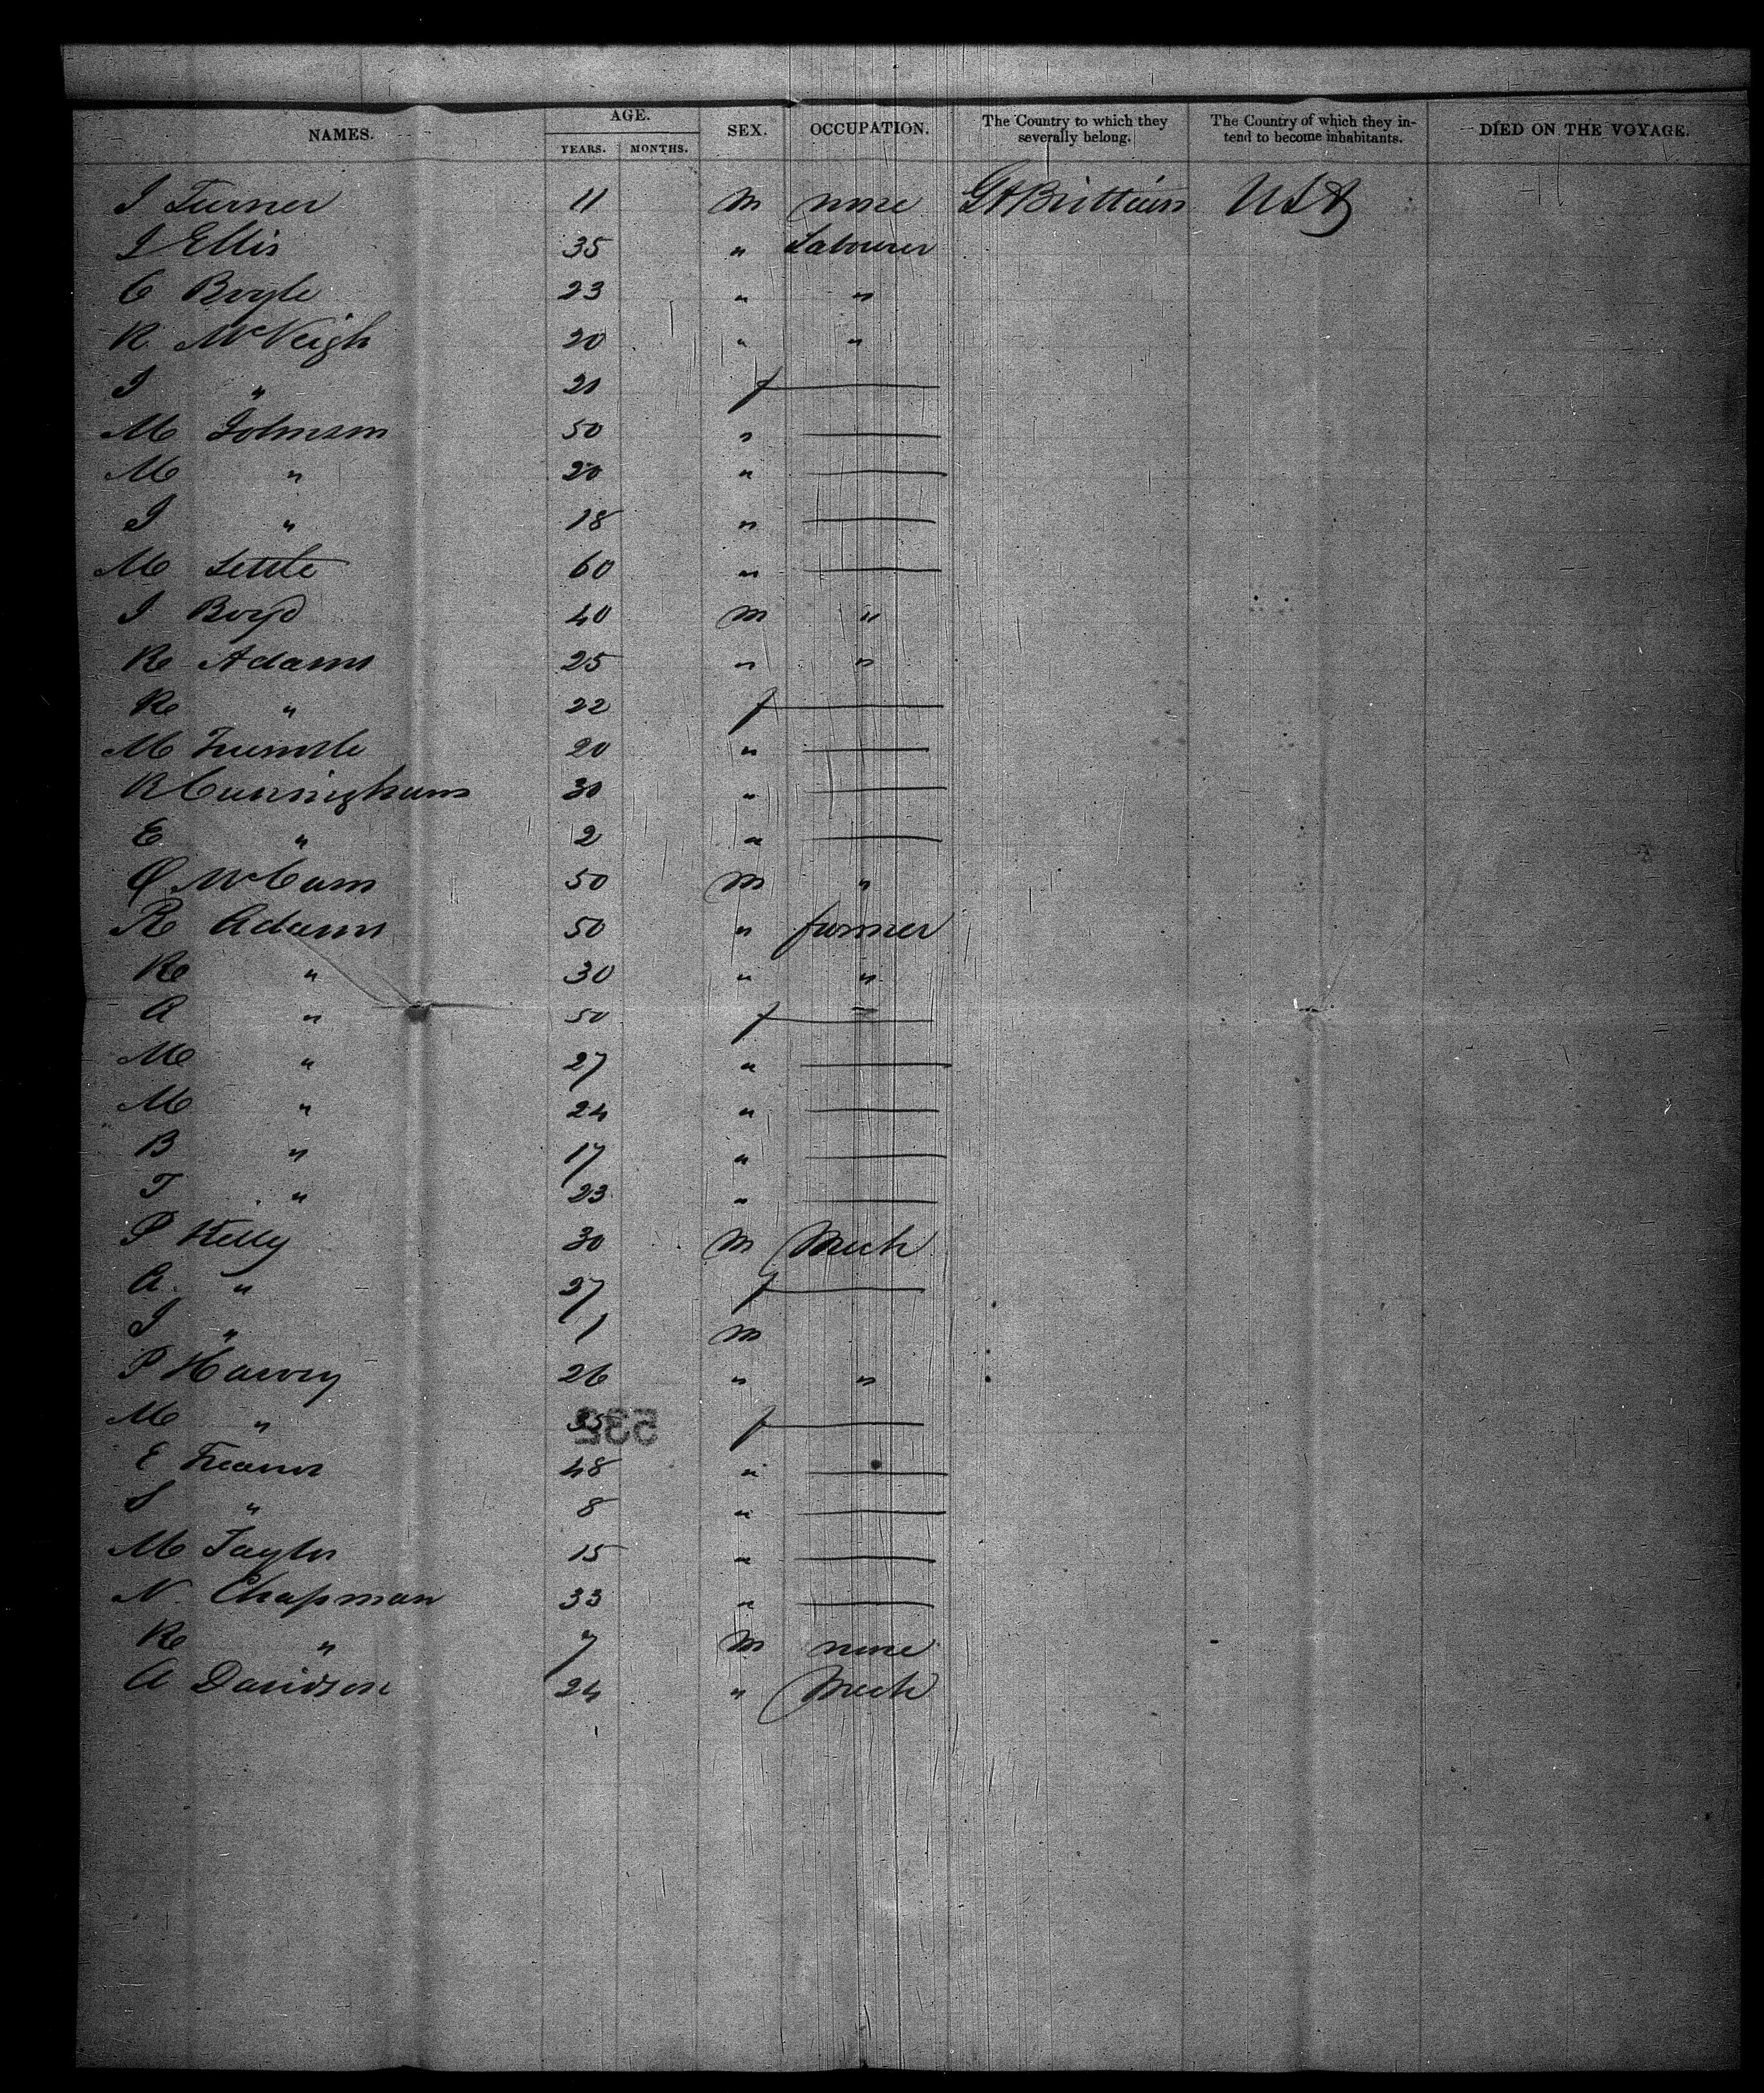 NAMES. AGE. YEARS. MONTHS. SEX. OCCUPATION. The Country to which they severally belong. The Country of which they intend to become inhabitants. DIED ON THE VOYAGE.
J Turner 11 m none Gt Brittain USA
J Ellis 35 " Labourer
C Boyle 23 " "
R McVeigh 20 " "
J " 21 f —
M Johnson 50 " —
M " 20 " —
J " 18 " —
M Little 60 " —
J Boyd 40 m "
R Adams 25 " "
R " 22 f —
M 20 " —
R Cunningham 30 " —
E " 2 " —
McCann 50 m "
R Adams 50 " farmer
R " 30 " "
A " 50 f —
M " 27 " —
M " 24 " —
B " 17 " —
T " 23 " —
P Kelly 30 m Mech
A. " 27 f —
J " 1 m
P Harvey 26 " "
M " 35 f —
532
E 48 " —
S " 8 " —
M Taylor 15 " —
N. Chapman 33 " —
R " 7 m none
A Davidson 24 " Mech